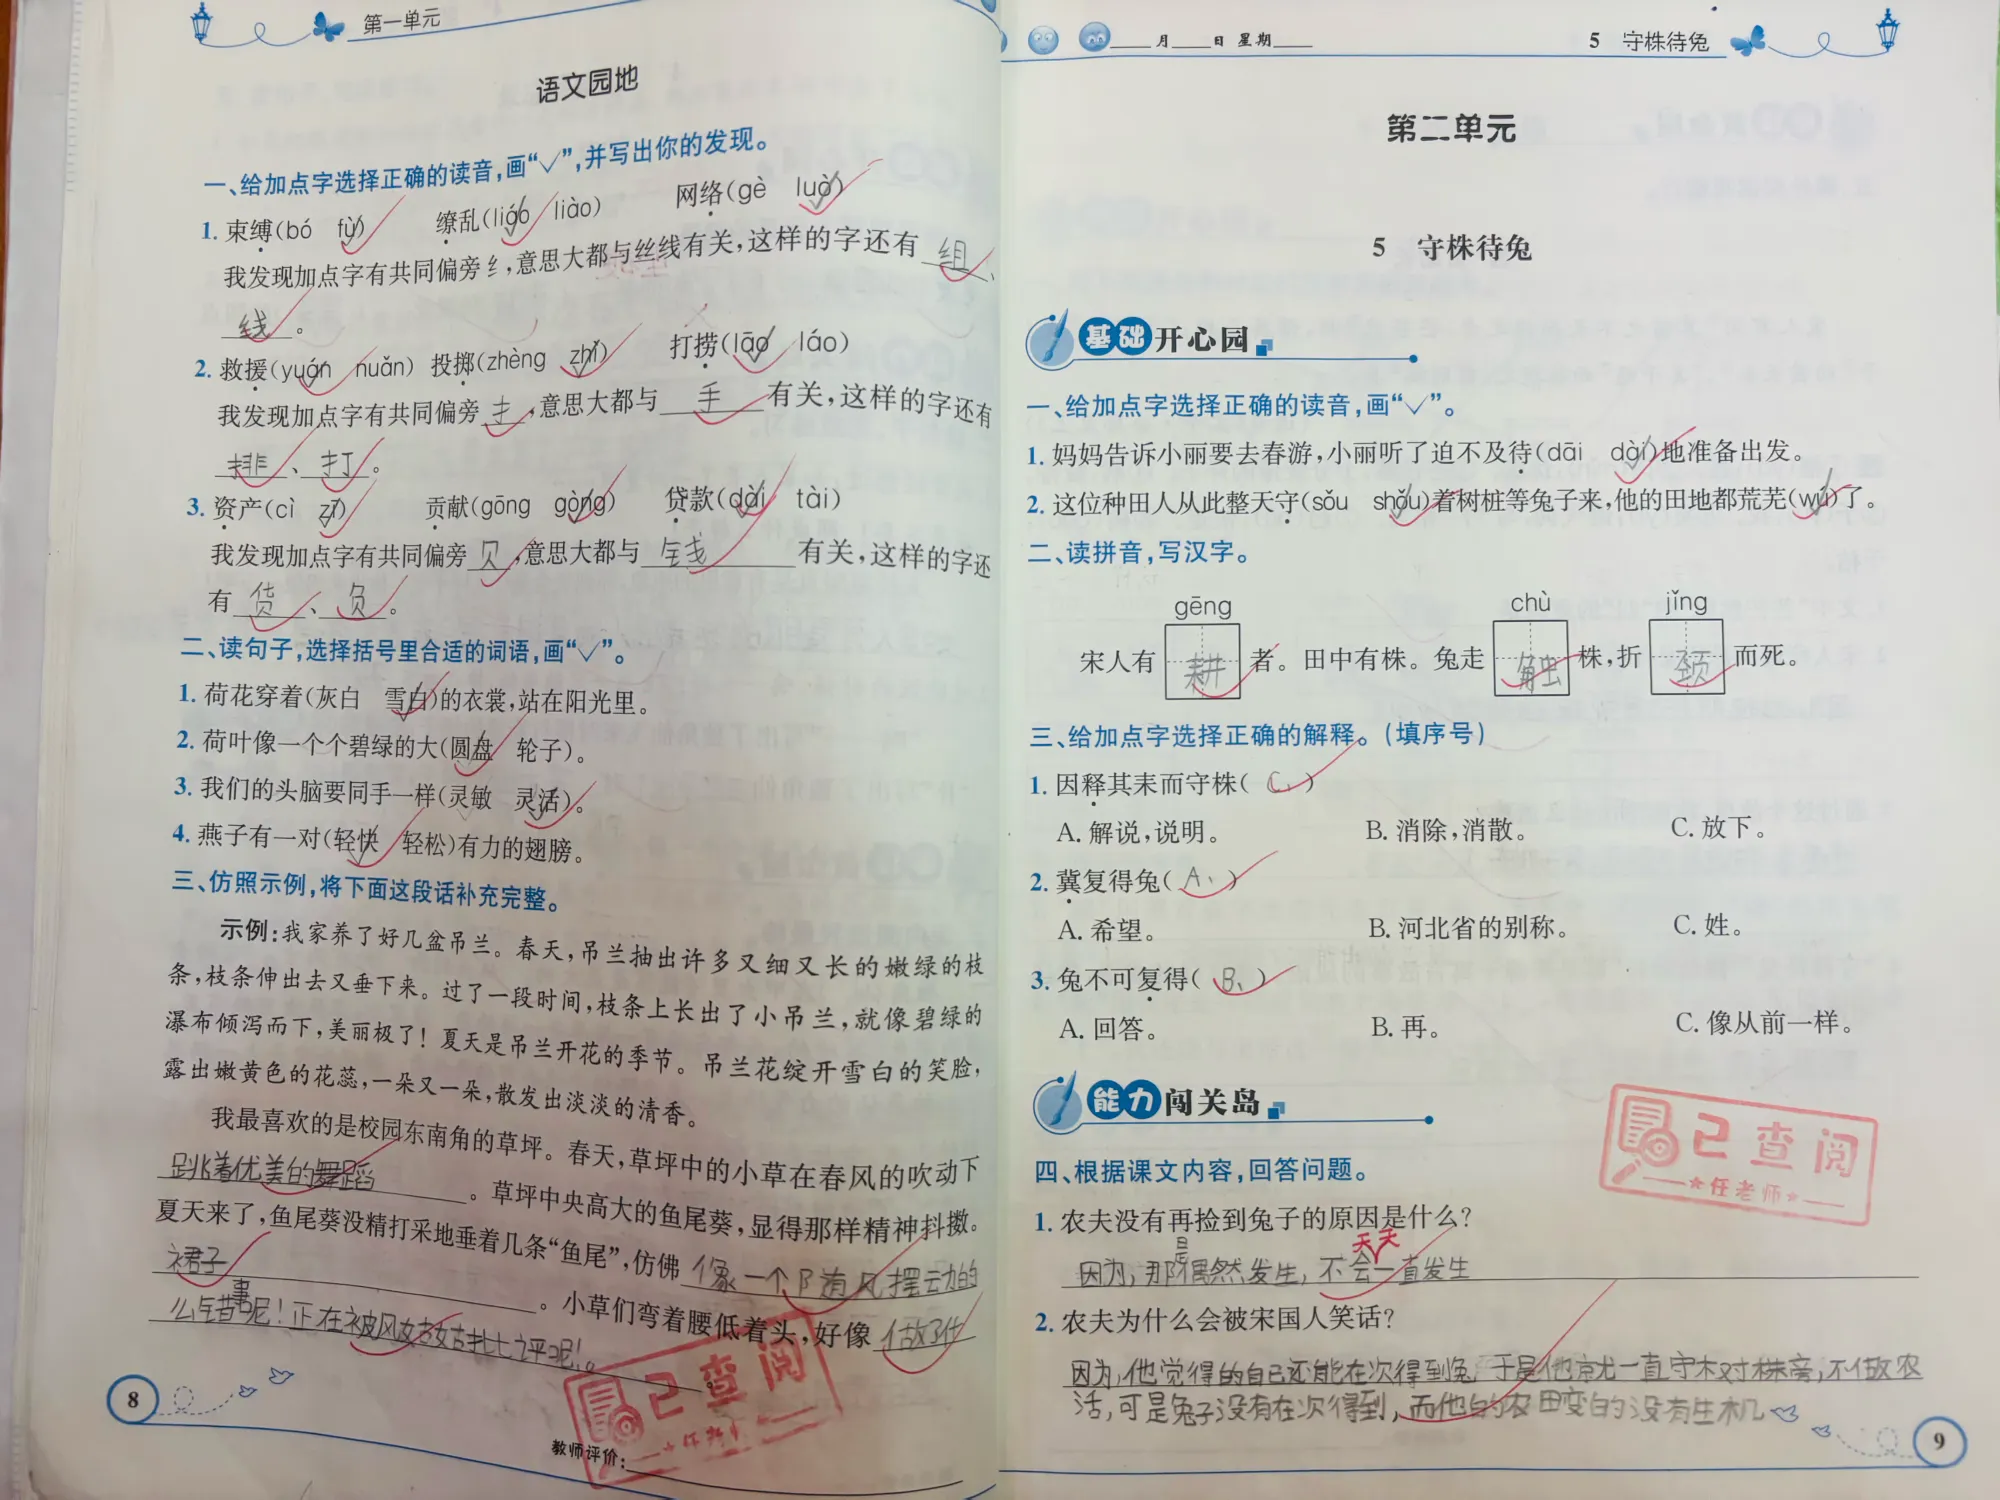 第一单元
语文园地
一、给加点字选择正确的读音,画“√”,并写出你的发现。
1. 束缚(bó fù) 缭乱(liáo liào) 网络(gè luò)
我发现加点字有共同偏旁纟,意思大都与丝线有关,这样的字还有 组、
线。
2. 救援(yuán nuǎn) 投掷(zhèng zhì) 打捞(lāo láo)
我发现加点字有共同偏旁扌,意思大都与 手 有关,这样的字还有
排、打。
3. 资产(cì zī) 贡献(gōng gòng) 贷款(dài tài)
我发现加点字有共同偏旁 贝,意思大都与 钱 有关,这样的字还
有 货、负。
二、读句子,选择括号里合适的词语,画“√”。
1. 荷花穿着(灰白 雪白)的衣裳,站在阳光里。
2. 荷叶像一个个碧绿的大(圆盘 轮子)。
3. 我们的头脑要同手一样(灵敏 灵活)。
4. 燕子有一对(轻快 轻松)有力的翅膀。
三、仿照示例,将下面这段话补充完整。
示例:我家养了好几盆吊兰。春天,吊兰抽出许多又细又长的嫩绿的枝
条,枝条伸出去又垂下来。过了一段时间,枝条上长出了小吊兰,就像碧绿的
瀑布倾泻而下,美丽极了!夏天是吊兰开花的季节。吊兰花绽开雪白的笑脸,
露出嫩黄色的花蕊,一朵又一朵,散发出淡淡的清香。
我最喜欢的是校园东南角的草坪。春天,草坪中的小草在春风的吹动下
跳着优美的舞蹈。草坪中央高大的鱼尾葵,显得那样精神抖擞。
夏天来了,鱼尾葵没精打采地垂着几条“鱼尾”,仿佛 像一个随风摆动的
裙子。小草们弯着腰低着头,好像 做了什
么错事呢!正在被风姑姑批评呢!。
教师评价:
已查阅
任老师
8
月 日 星期
5 守株待兔
第二单元
5 守株待兔
基础开心园
一、给加点字选择正确的读音,画“√”。
1. 妈妈告诉小丽要去春游,小丽听了迫不及待(dāi dài)地准备出发。
2. 这位种田人从此整天守(sǒu shǒu)着树桩等兔子来,他的田地都荒芜(wú)了。
二、读拼音,写汉字。
gēng chù jǐng
宋人有 耕 者。田中有株。兔走 触 株,折 颈 而死。
三、给加点字选择正确的解释。(填序号)
1. 因释其耒而守株( C、)
A. 解说,说明。 B. 消除,消散。 C. 放下。
2. 冀复得兔( A、)
A. 希望。 B. 河北省的别称。 C. 姓。
3. 兔不可复得( B、)
A. 回答。 B. 再。 C. 像从前一样。
能力闯关岛
已查阅
任老师
四、根据课文内容,回答问题。
1. 农夫没有再捡到兔子的原因是什么?
因为,那是偶然发生,不会天天一直发生
2. 农夫为什么会被宋国人笑话?
因为,他觉得的自己还能在次得到兔 于是他就一直守木对株旁,不做农
活,可是兔子没有在次得到,而他的农田变的没有生机
9